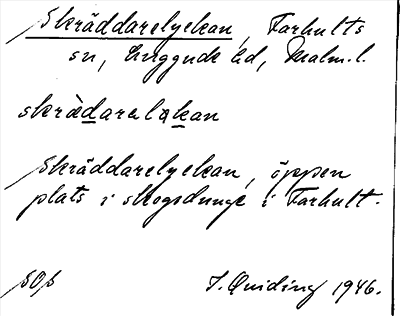 Skräddarelyckan, Farhults
sn, Luggude hd, Malm. l.
skrädarelykan
Skräddarelyckan, öppen
plats i skogsdunge i Farhult.
SOS J. Quiding 1946.